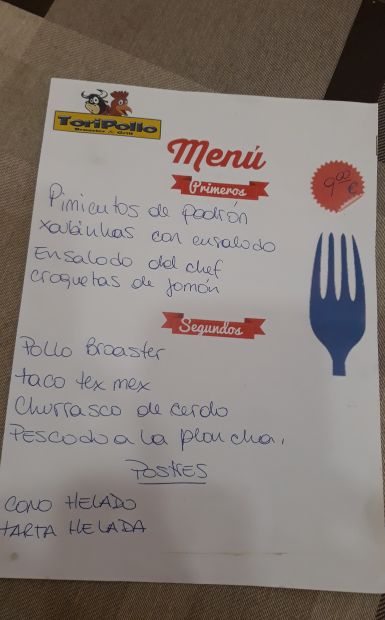 ToriPollo
Broaster & Grill
Menú
Primeros
9,00 €
Pimientos de padrón
xoubinhas con ensalada
Ensalada del chef
croquetas de jamón
Segundos
Pollo Broaster
taco tex mex
Churrasco de cerdo
PESCADO a la plancha.
POSTRES
CONO HELADO
TARTA HELADA